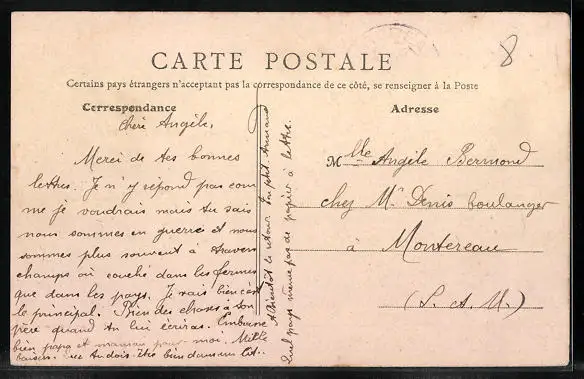 8
CARTE POSTALE
Certains pays étrangers n'acceptant pas la correspondance de ce côté, se renseigner à la Poste
Correspondance
Chère Angèle,
Merci de tes bonnes
lettres. Je n'y répond pas com
me je voudrais mais tu sais
nous sommes en guerre et nous
sommes plus souvent à travers
champs où couché dans les fermes
que dans les pays. Je vais bien c'est
le principal. Bien des choses à son
père quand tu lui écriras. Embrasse
bien papa et maman pour moi. Mille
baisers. que tu dois être bien dans un lit..
A Bientôt le retour Ton ptit Armand
Quel pays même pas de papier à lettre.
Adresse
Mlle Angèle Bermond
chez Mr Denis boulanger
à Montereau
(S. et M.)